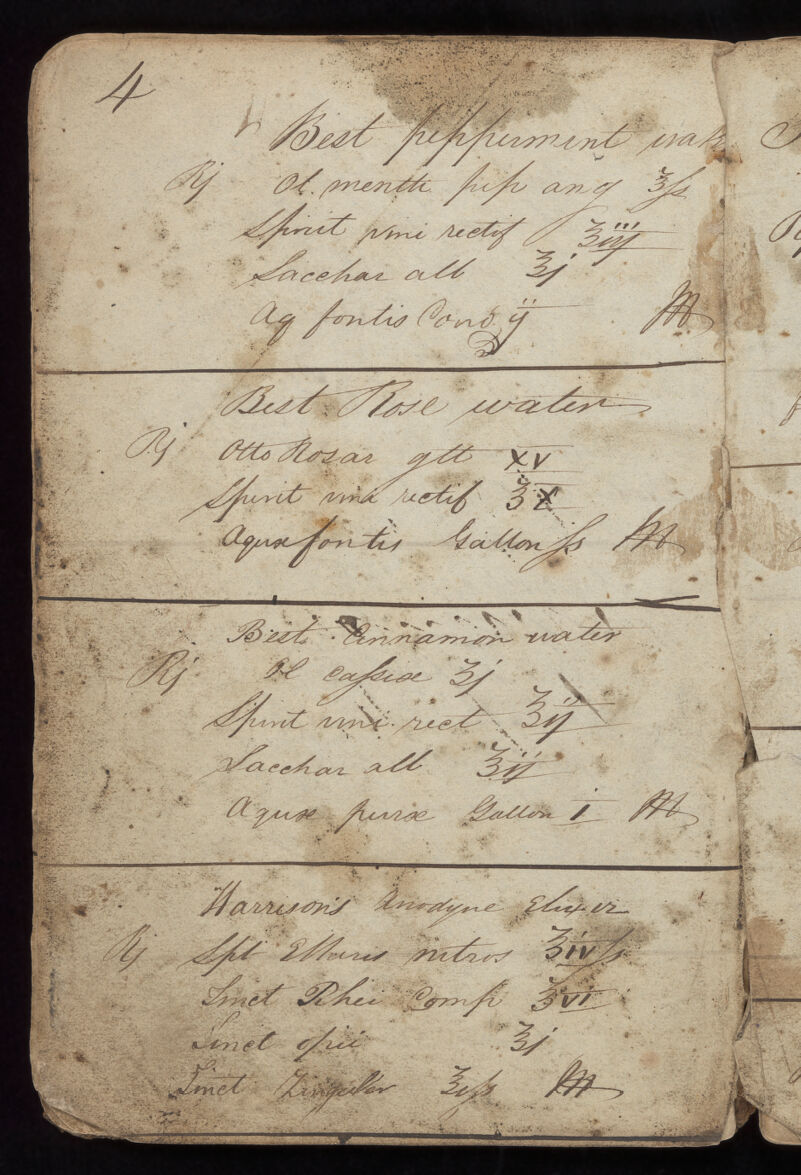 4
Best pepperment wat
R Ol. menth pip ang ʒss
Spirit vini rectif ℥iij
Sacchar alb ℥j
Aq fontis Cong ij M
Best Rose water
R Otto Rosar gtt xv
Spirit vini rectif ʒx
Aquæ fontis Gallon ss M
Best Cinnamon water
R Ol cassiæ ʒj
Spirit vini rect ℥ij
Sacchar alb ℥ij
Aquæ puræ Gallon i M
Harrison's Anodyne Elixir
R Spt Etheris nitros ℥ivss
Tinct Rhei Comp ℥vi
Tinct opii ℥j
Tinct Zingiber M